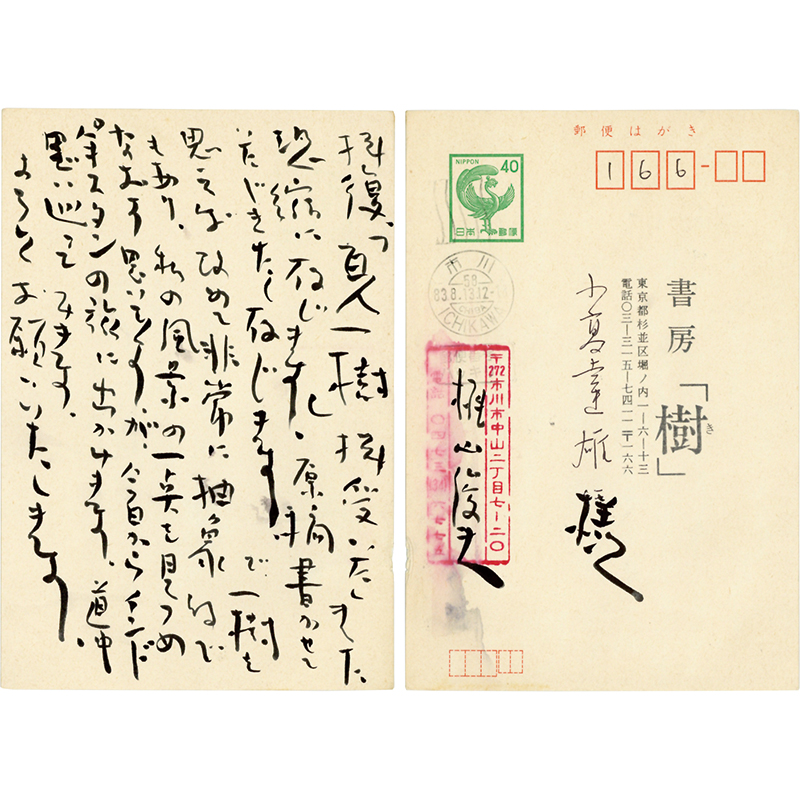 拝復、一樹拝受いたしました
恐縮に存じました、原稿書かせて
いただきたく存じます で一樹を
思えば改めて非常に抽象的で
もあり、私の風景の一点を見つめ
なおす思いですが、今日からインド
パキスタンの旅に出かけます、道中
思い巡って みます。
よろしくお願いいたします
郵便はがき
166-
NIPPON 40
日本郵便
市川
58
83.8.13 12-
ICHIKAWA
書房「樹」
き
東京都杉並区堀ノ内一ー六ー十三
電話〇三ー三一五ー七四一一 〒一六六
小高達雄 様
〒272 市川市中山二丁目七ー二〇
椎山俊夫